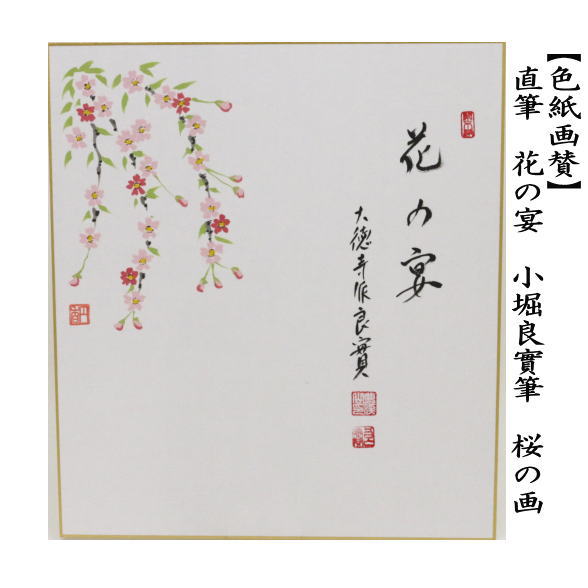 【色紙画賛】
直筆 花の宴 小堀良實筆 桜の画
花の宴
大徳寺派良實